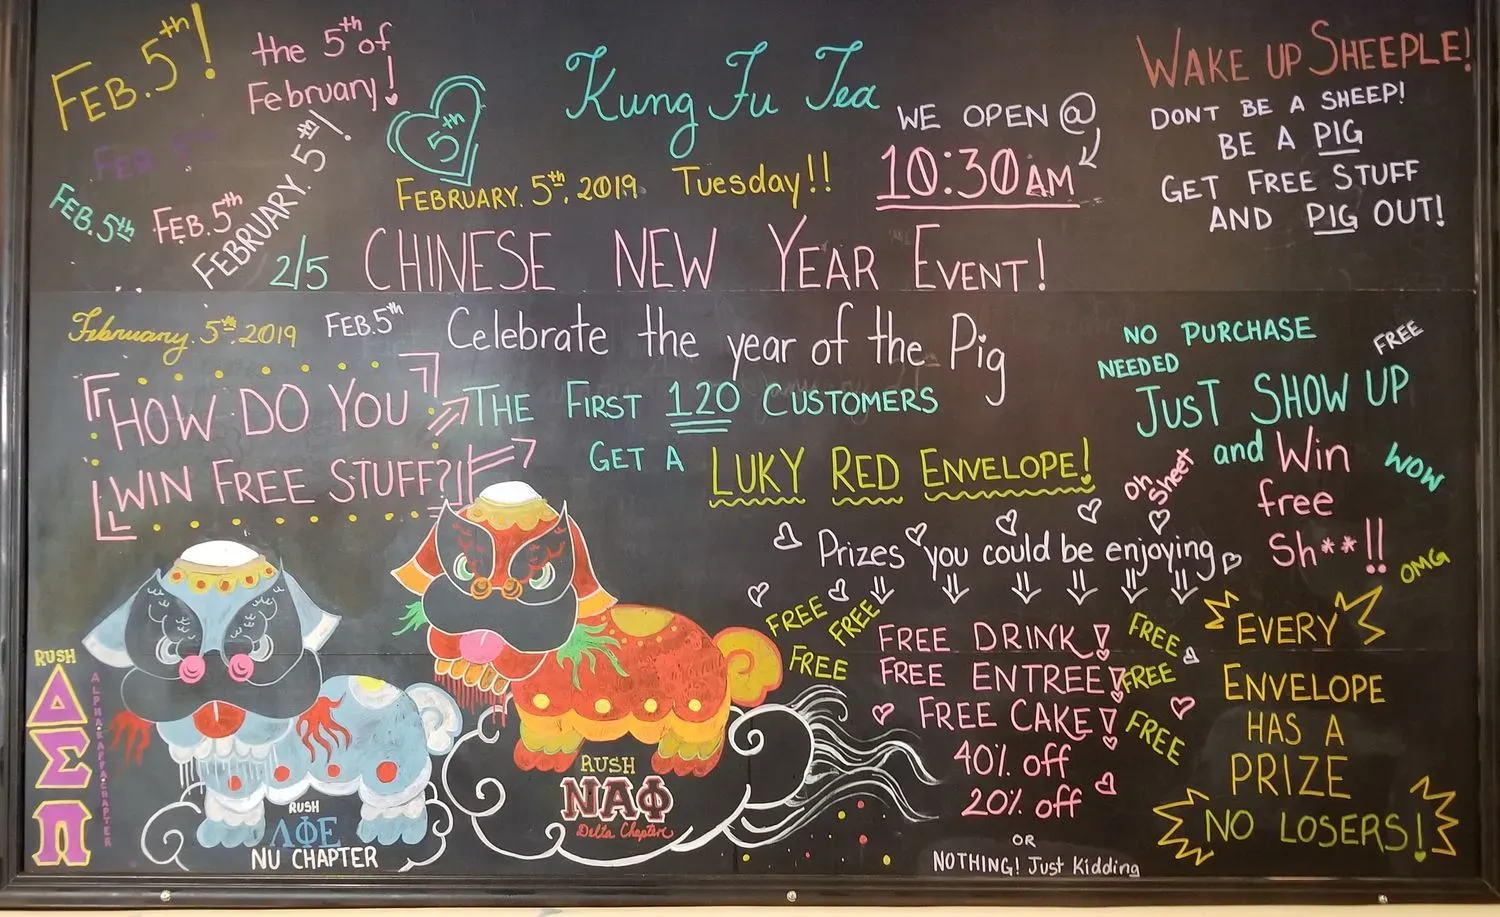 FEB. 5th!
the 5th of
February!
FEB 5th
FEB. 5th
FEB. 5th
FEBRUARY. 5th!
5th
Kung Fu Tea
FEBRUARY. 5th, 2019. Tuesday!!
WE OPEN @
10:30AM
2/5 CHINESE NEW YEAR EVENT!
WAKE UP SHEEPLE!
DONT BE A SHEEP!
BE A PIG
GET FREE STUFF
AND PIG OUT!
February. 5th. 2019
FEB. 5th
Celebrate the year of the Pig
HOW DO YOU
WIN FREE STUFF?!
THE FIRST 120 CUSTOMERS
GET A LUKY RED ENVELOPE!
NO PURCHASE
NEEDED
FREE
JUST SHOW UP
and Win
free
Sh**!!
Oh Sheet
WOW
OMG
Prizes you could be enjoying
FREE
FREE
FREE
FREE DRINK!
FREE ENTREE!
FREE CAKE!
40% off
20% off
OR
NOTHING! Just Kidding
FREE
FREE
FREE
EVERY
ENVELOPE
HAS A
PRIZE
NO LOSERS!
RUSH
ΔΣΠ
ALPHA KAPPA CHAPTER
RUSH
ΛΦΕ
NU CHAPTER
RUSH
ΝΑΦ
Delta Chapter